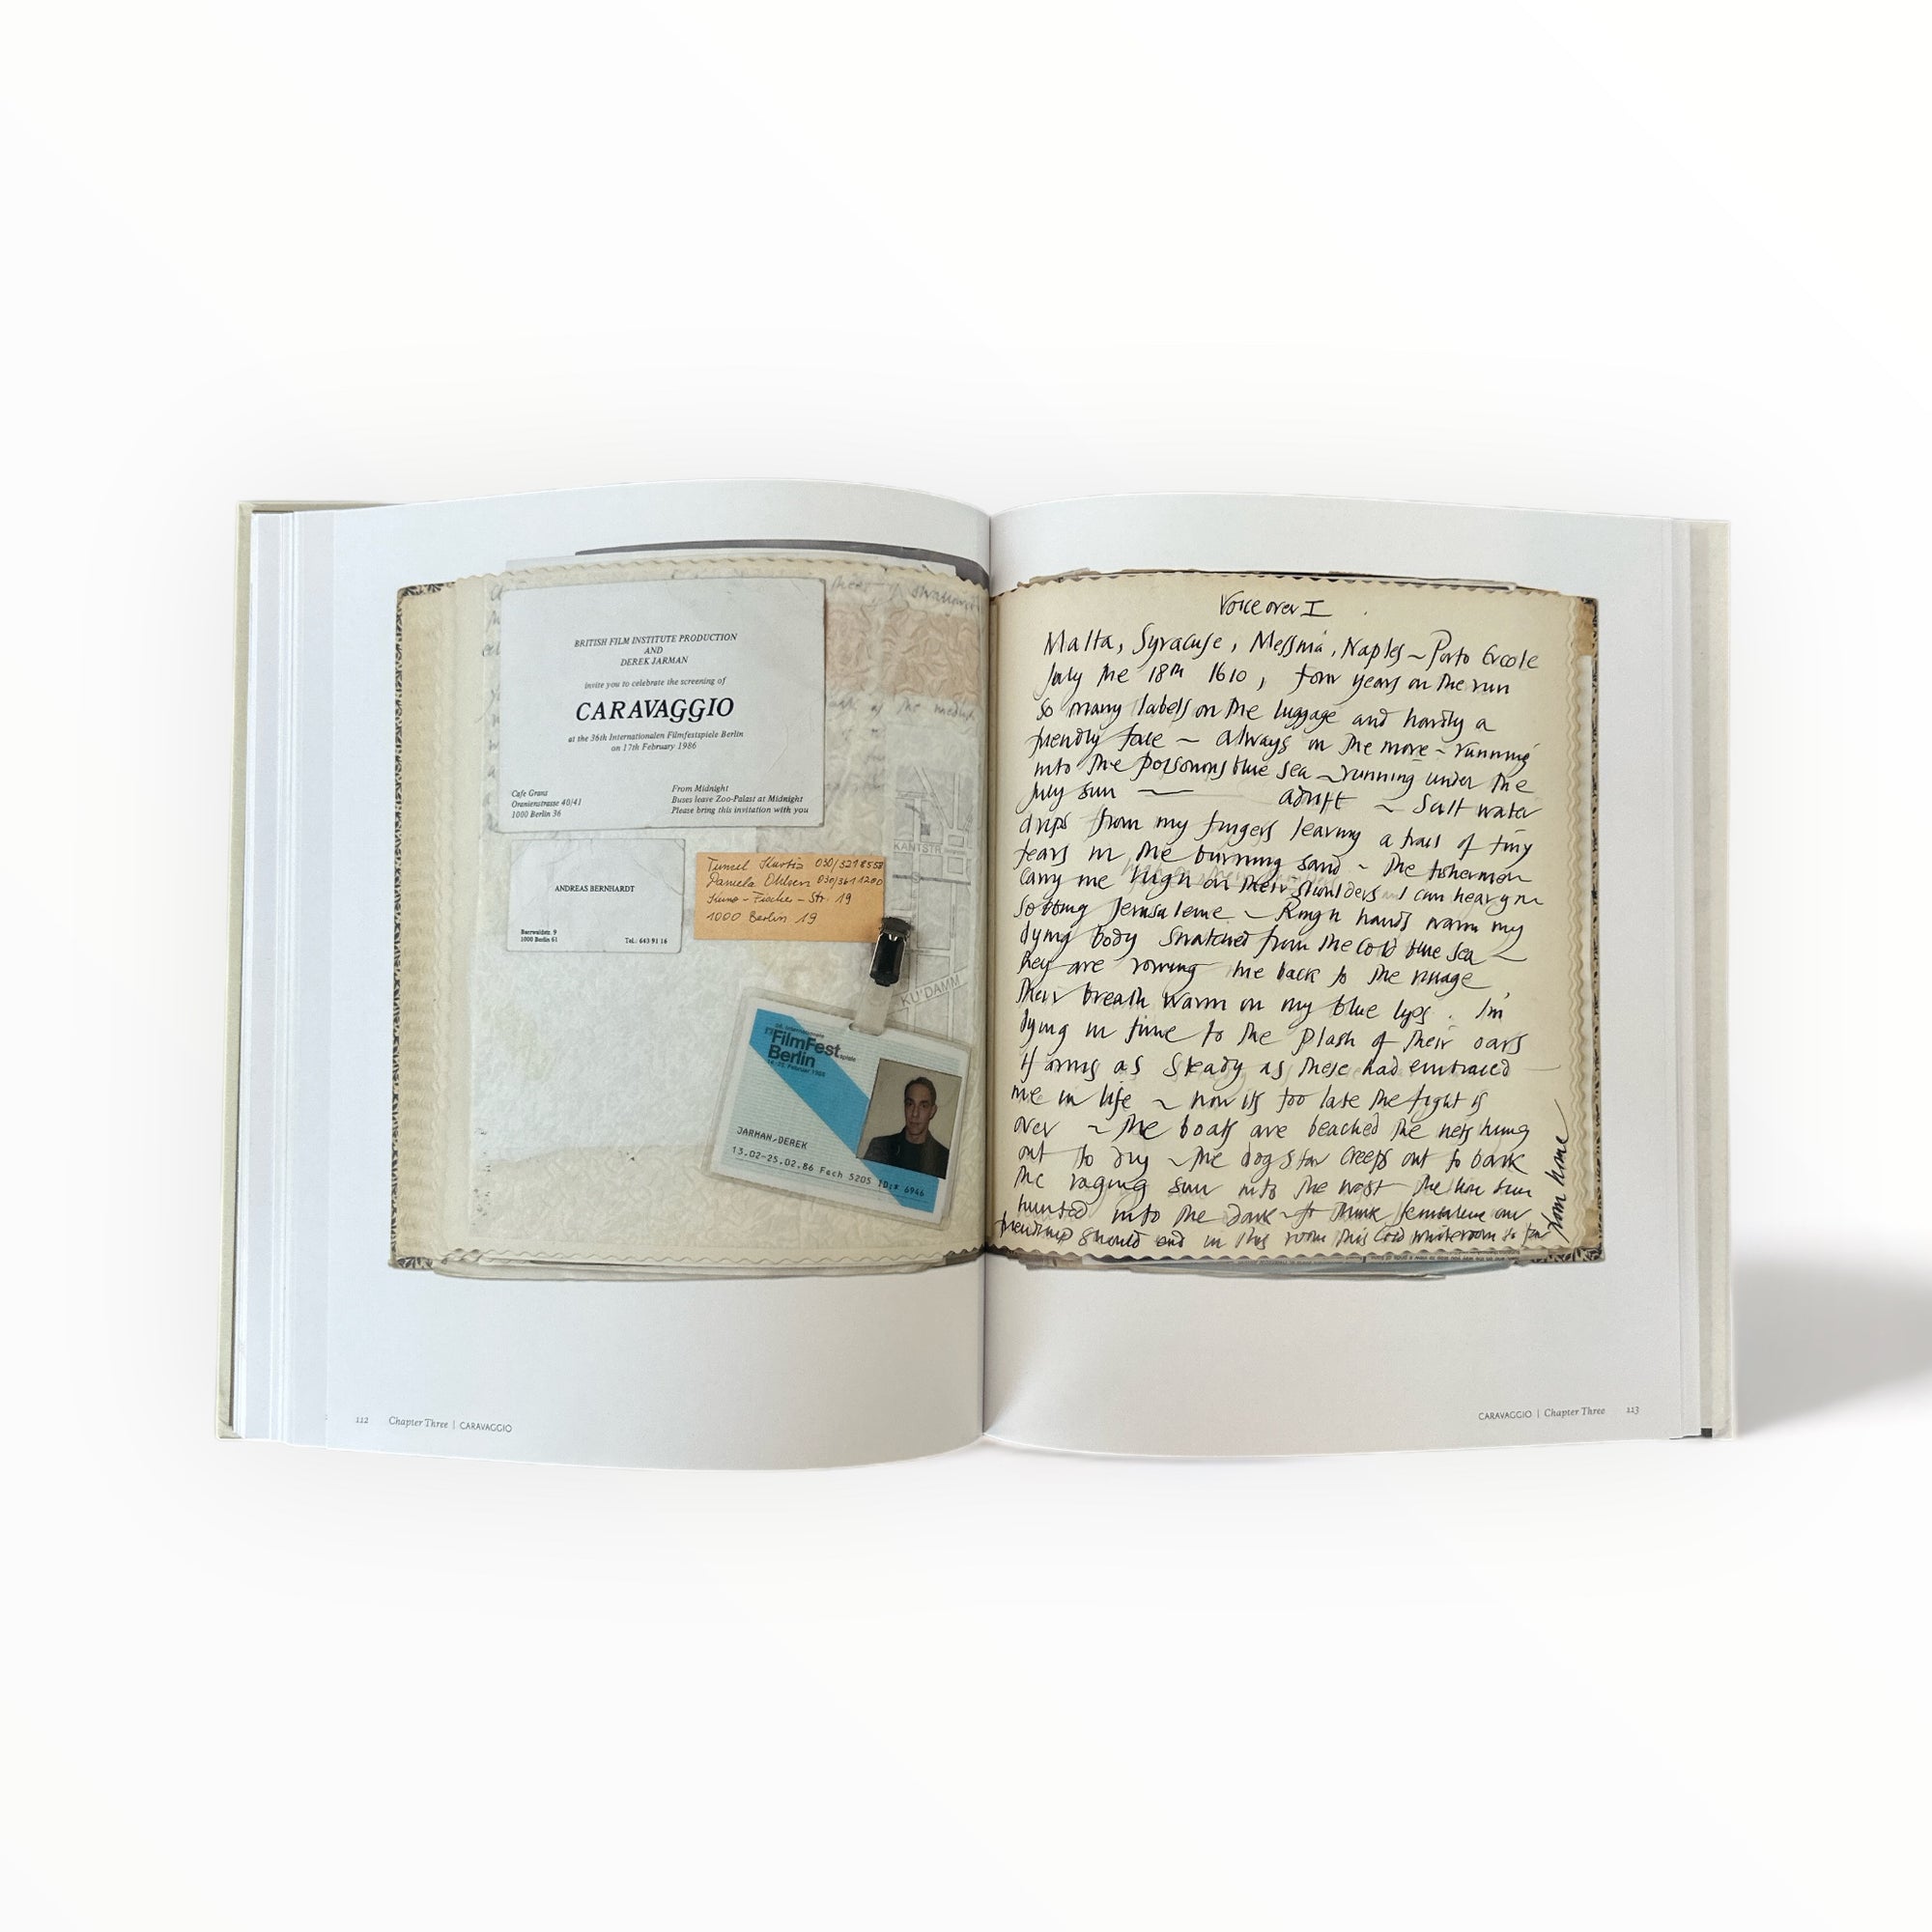 BRITISH FILM INSTITUTE PRODUCTION
AND
DEREK JARMAN
invite you to celebrate the screening of
CARAVAGGIO
at the 36th Internationalen Filmfestspiele Berlin
on 17th February 1986
Cafe Granz
Oranienstrasse 40/41
1000 Berlin 36
From Midnight
Buses leave Zoo-Palast at Midnight
Please bring this invitation with you
ANDREAS BERNHARDT
Baerwaldstr. 9
1000 Berlin 61
Tel.: 643 91 16
030/3218558
030/3611200
Kuno-Fischer-Str. 19
1000 Berlin 19
KANTSTR
KU'DAMM
FilmFest
Berlin
JARMAN, DEREK
13.02-25.02.86 Fach 5205 ID:# 6946
112 Chapter Three | CARAVAGGIO
Voice over I
Malta, Syracuse, Messina, Naples ~ Porto Ercole
July the 18th 1610, four years on the run
so many labels on the luggage and hardly a
friendly face ~ always on the move ~ running
into the poisonous blue sea ~ running under the
July sun — adrift ~ Salt water
drips from my fingers leaving a trail of tiny
tears in the burning sand ~ the fishermen
carry me high on their shoulders I can hear you
sobbing Jerusaleme ~ Rough hands warm my
dying body snatched from the cold blue sea ~
they are rowing me back to the village
their breath warm on my blue lips. I'm
dying in time to the plash of their oars
If arms as steady as these had embraced
me in life ~ now its too late the fight is
over ~ the boats are beached the nets hung
out to dry ~ the dog star creeps out to bark
the raging sun into the west the lion sun
hunted into the dark ~ to think Jerusaleme our
friendship should end in this room this cold white room so far
from home
CARAVAGGIO | Chapter Three 113